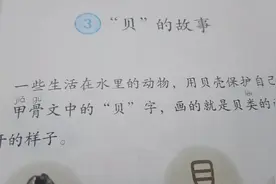 3 “贝”的故事
一些生活在水里的动物，用贝壳保护自己
jiǎ gǔ
甲骨文中的“贝”字，画的就是贝类的
开的样子。